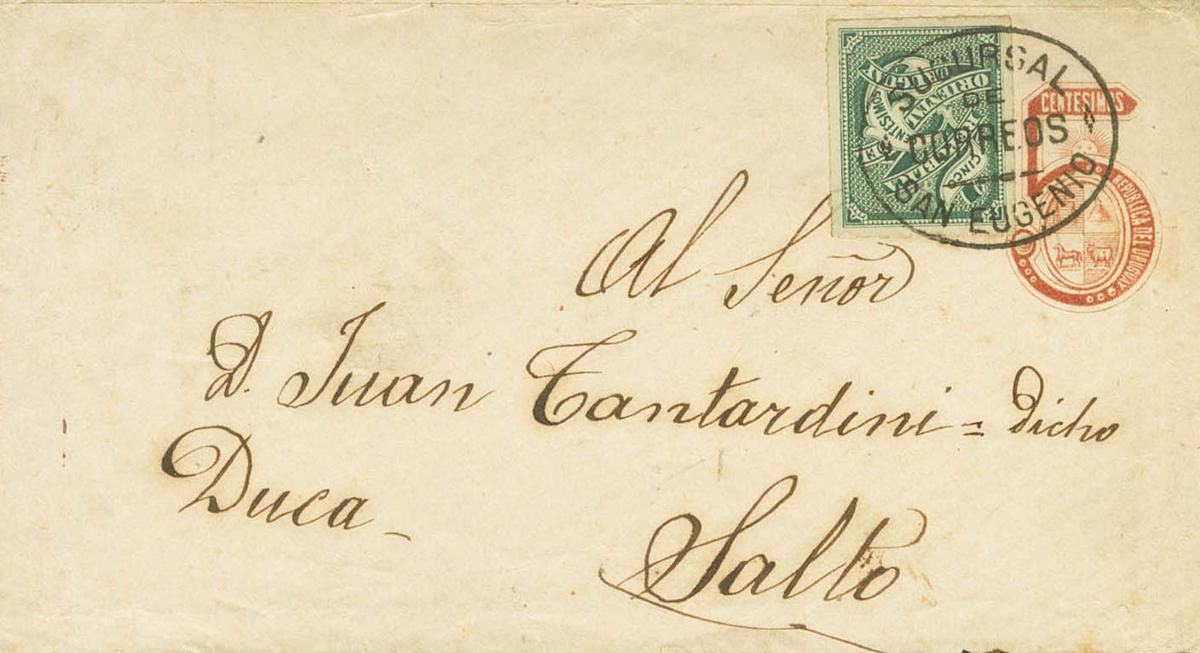 SUCURSAL
DE
CORREOS
SAN EUGENIO
CENTESIMOS
REPUBLICA DEL URUGUAY
REPUBLICA
ORIENTAL
DEL URUGUAY
CINCO
CENTESIMOS
Al Señor
D. Juan Tantardini = dicho
Duca_
Salto